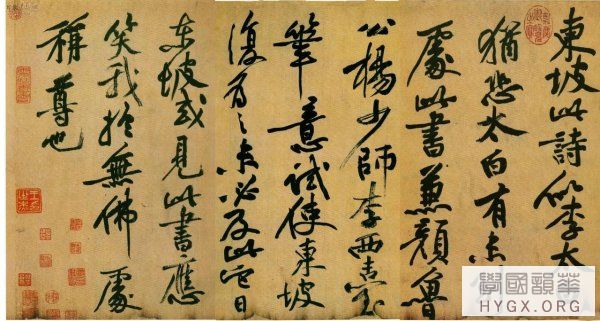 東坡此詩似李太
猶恐太白有未
處此書兼顏魯
公楊少師李西臺
筆意試使東坡
復為之未必及此它日
東坡或見此書應
笑我於無佛處
稱尊也
學國韻華
HYGX.ORG